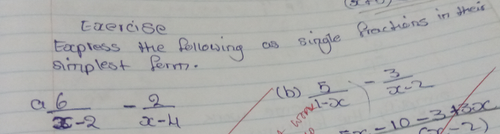 Exercise
Express the following as single fractions in their
simplest form.
a 6/x-2 - 2/x-4 (b) 5/1-x - 3/x-2
-10-3+3x